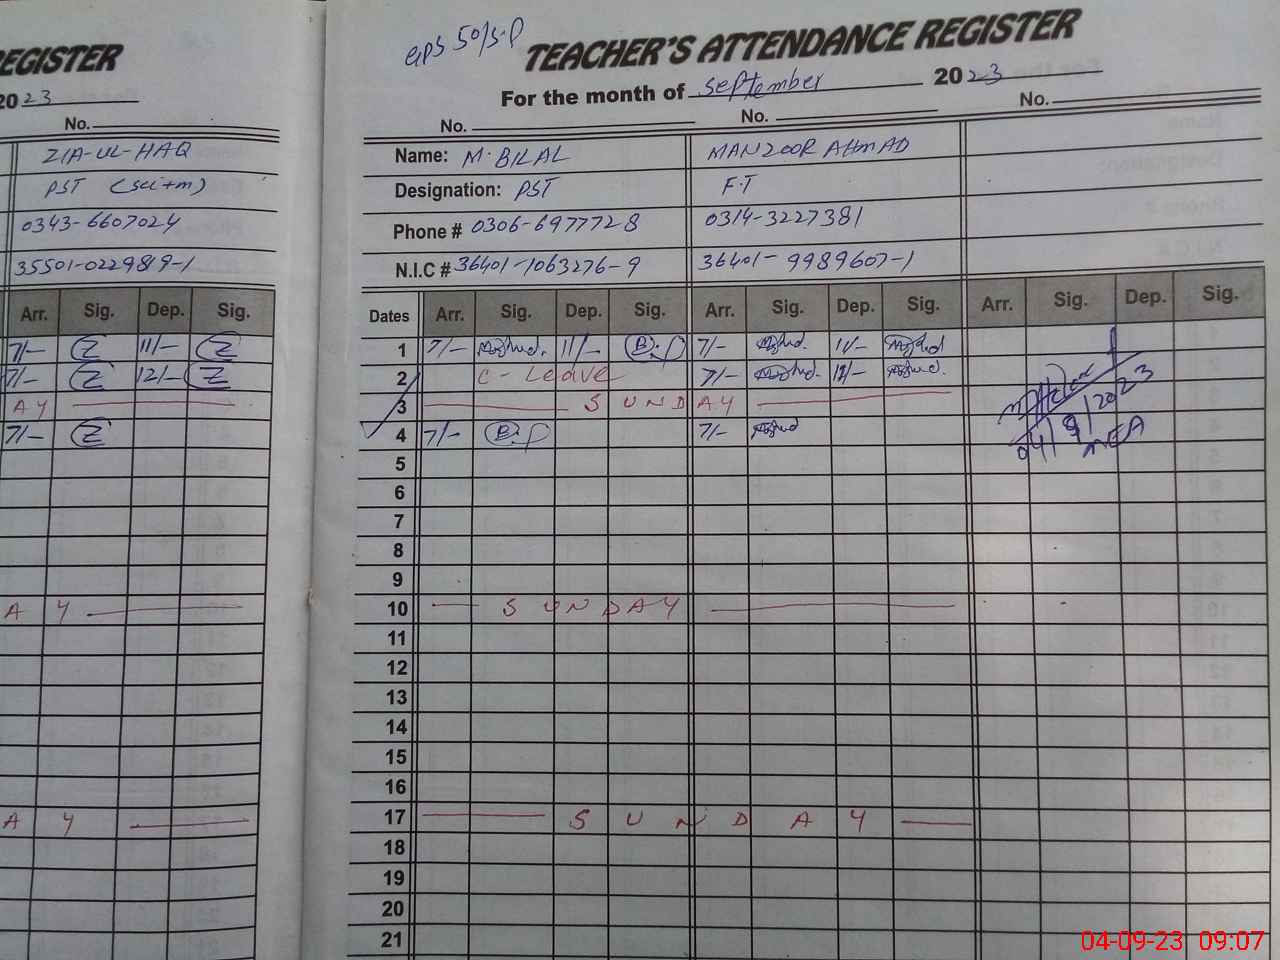 REGISTER
2023
No.
ZIA-UL-HAQ
PST (sci+m)
0343-6607024
35501-0229819-1
Arr. Sig. Dep. Sig.
7/- Z 11/- Z
7/- Z 12/- Z
A Y
7/- Z
A Y
A Y
GPS 50/S.P
TEACHER'S ATTENDANCE REGISTER
For the month of September 2023
No. No. No.
Name: M. BILAL MANZOOR AHMAD
Designation: PST F.T
Phone # 0306-6977728 0314-3227381
N.I.C # 36401-7063276-9 36401-9989607-1
Dates Arr. Sig. Dep. Sig. Arr. Sig. Dep. Sig. Arr. Sig. Dep. Sig.
1 7/- 11/- 7/- 11/-
2 C-Leave 7/- 12/-
3 SUNDAY
4 7/- 7/-
04/9/2023
MEA
5
6
7
8
9
10 SUNDAY
11
12
13
14
15
16
17 SUNDAY
18
19
20
21
04-09-23 09:07